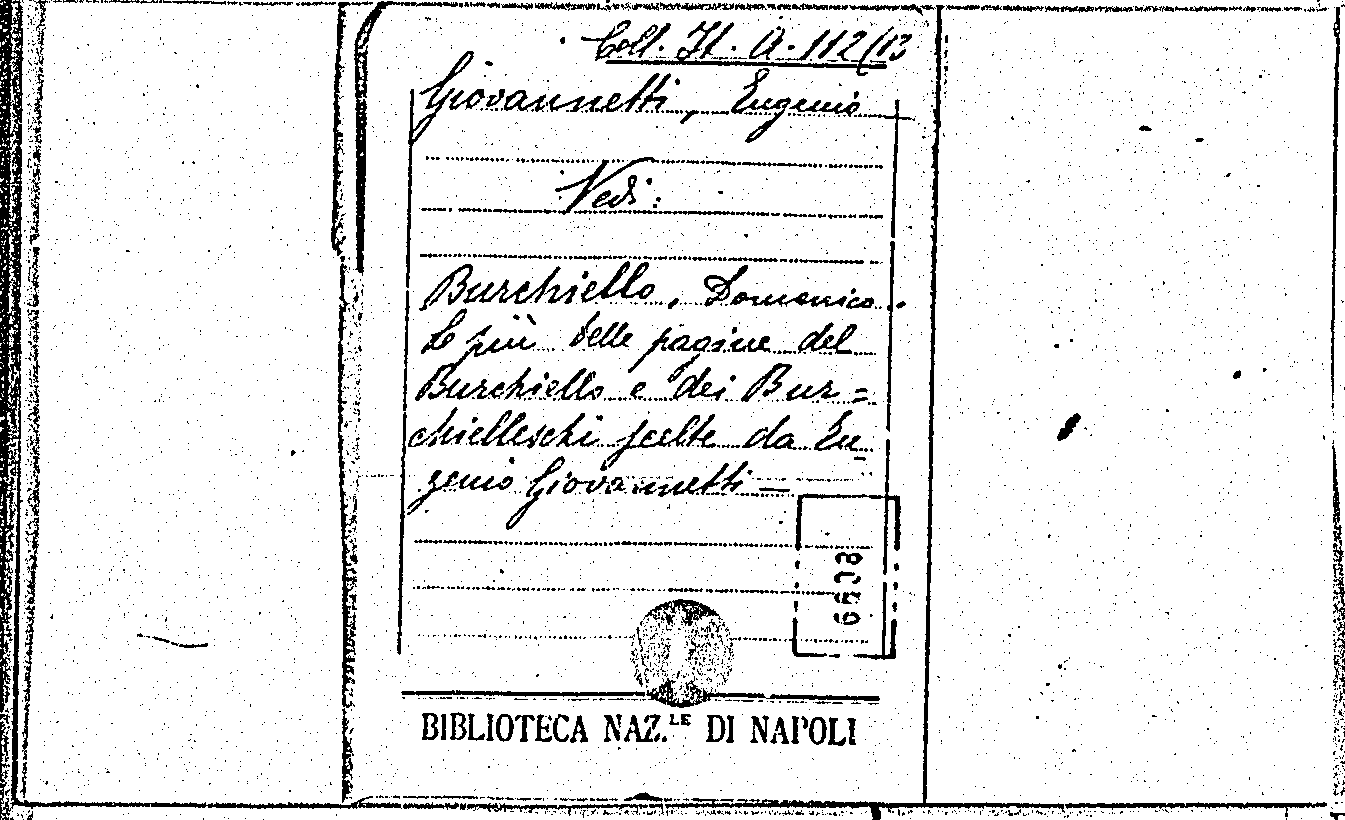 Coll. It. A. 112 (13
Giovannetti, Eugenio
Vedi:
Burchiello, Domenico.
Le più belle pagine del
Burchiello e dei Bur=
chielleschi scelte da Eu
genio Giovannetti —
BIBLIOTECA NAZ.LE DI NAPOLI